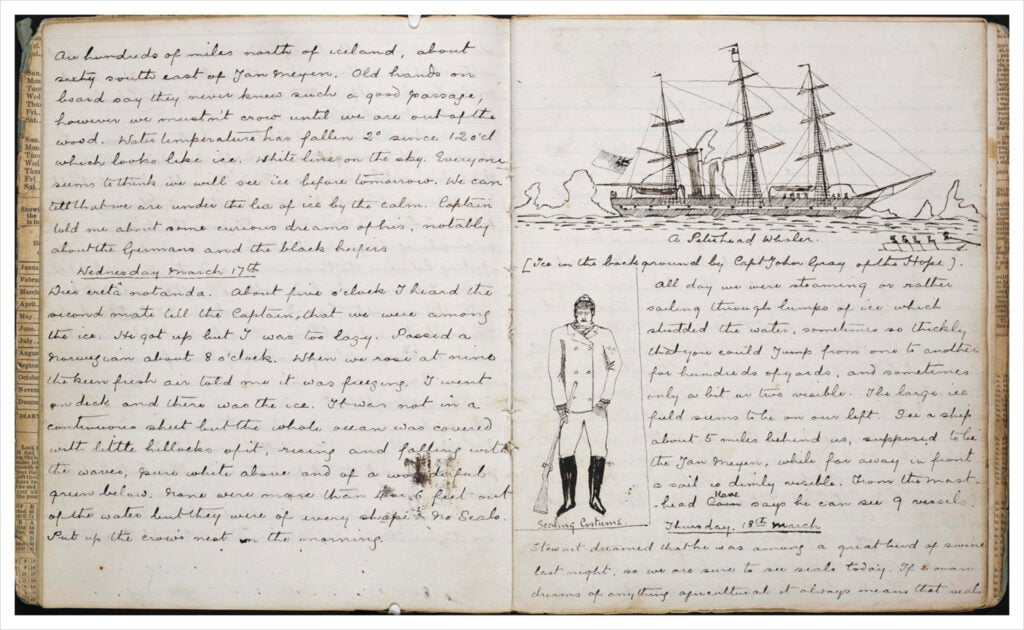 are hundreds of miles north of iceland, about
sixty south east of Jan Meyen. Old hands on
board say they never knew such a good passage,
however we mustn't crow until we are out of the
wood. Water temperature has fallen 2° since 12 o'cl
which looks like ice. White line on the sky. Everyone
seems to think we will see ice before tomorrow. We can
tell that we are under the lea of ice by the calm. Captain
told me about some curious dreams of his, notably
about the Germans and the black heifers.
Wednesday March 17th
Dies cretâ notanda. About five o'clock I heard the
second mate tell the Captain, that we were among
the ice. He got up but I was too lazy. Passed a
Norwegian about 8 o'clock. When we rose at nine
the keen fresh air told me it was freezing. I went
on deck and there was the ice. It was not in a
continuous sheet but the whole ocean was covered
with little hillocks of it, rising and falling with
the waves, pure white above and of a wonderful
green below. None were more than 4 or 6 feet out
of the water but they were of every shape. No Seals.
Put up the crows nest in the morning.
A Peterhead Whaler.
[Ice in the background by Capt John Gray of the Hope].
All day we were steaming or rather
sailing through lumps of ice which
studded the water, sometimes so thickly
that you could jump from one to another
for hundreds of yards, and sometimes
only a bit or two visible. The large ice
field seems to be on our left. See a ship
about 5 miles behind us, supposed to be
the Jan Meyen, while far away in front
a sail is dimly visible. From the mast-
head Colin says he can see 9 vessels.
Sealing Costume.
Thursday. 18th March
Stewart dreamed that he was among a great herd of swine
last night, so we are sure to see seals today. If a man
dreams of anything agricultural it always means that seals
Sun.
Mon
Tues
Wed
Thu
Fri.
Sat.
Janua
Febru
March
April.
May
June.
July.
August
Septem
October
Novem
Decem
DIARY